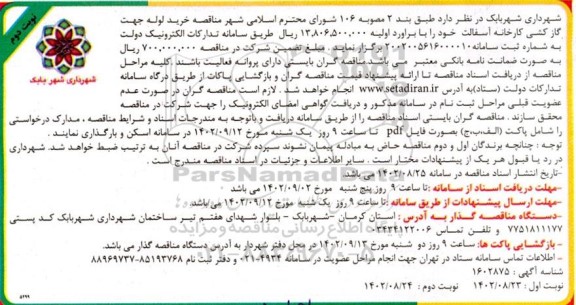 نوبت دوم
شهرداری شهر بابک
شهرداری شهربابک در نظر دارد طبق بند ۲ مصوبه ۱۰۶ شورای محترم اسلامی شهر مناقصه خرید لوله جهت
گاز کشی کارخانه آسفالت خود را با برآورد اولیه ۱۳,۸۰۶,۵۰۰,۰۰۰ ریال طریق سامانه تدارکات الکترونیک دولت
به شماره ثبت سامانه برگزار نماید. مبلغ تضمین شرکت در مناقصه ۷۰۰,۰۰۰,۰۰۰ ریال
به صورت ضمانت نامه بانکی معتبر می باشد. مناقصه گران بایستی دارای پروانه فعالیت باشند. کلیه مراحل
مناقصه از دریافت اسناد مناقصه تا ارائه پیشنهاد قیمت مناقصه گران و بازگشایی پاکات از طریق درگاه سامانه
تدارکات دولت (ستاد)به آدرس www.setadiran.ir انجام خواهد شد. لازم است مناقصه گران در صورت عدم
عضویت قبلی مراحل ثبت نام در سامانه مذکور و دریافت گواهی امضای الکترونیک را جهت شرکت در مناقصه
محقق سازند. مناقصه گران بایستی اسناد مناقصه را از طریق سامانه دریافت و باتوجه به مندرجات اسناد و شرایط مناقصه، مدارک درخواستی
را شامل پاکت (الف،ب،ج) بصورت فایل pdf تا ساعت ۹ روز یک شنبه مورخ ۱۴۰۲/۰۹/۱۲ در سامانه اسکن و بارگذاری نمایند.
توجه : چنانچه برندگان اول و دوم مناقصه حاضر به مبادله پیمان نشوند سپرده شرکت در مناقصه آنان به ترتیب ضبط خواهد شد. شهرداری
در رد یا قبول هر یک از پیشنهادات مختار است. سایر اطلاعات و جزئیات در اسناد مناقصه مندرج است.
-تاریخ انتشار اسناد مناقصه در سامانه ۱۴۰۲/۰۸/۲۵ می باشد
-مهلت دریافت اسناد از سامانه :تا ساعت ۹ روز پنج شنبه مورخ ۱۴۰۲/۰۹/۰۲ می باشد
-مهلت ارسال پیشنهادات از طریق سامانه :تا ساعت ۹ روز یک شنبه مورخ ۱۴۰۲/۰۹/۱۲ می باشد.
-دستگاه مناقصه گذار به آدرس : استان کرمان -شهربابک - بلوار شهدای هفتم تیر ساختمان شهرداری شهربابک کد پستی
۷۷۵۱۸۱۱۱۷۷ و تلفن تماس ۳۴۳۴۱۲۲۰۰۶
- بازگشایی پاکت ها: ساعت ۹ روز دو شنبه مورخ ۱۴۰۲/۰۹/۱۳ در محل دفتر شهردار به آدرس دستگاه مناقصه گذار می باشد.
- اطلاعات تماس سامانه ستاد در تهران جهت انجام مراحل عضویت در سامانه ۴۹۳۴-۰۲۱ و دفتر ثبت نام ۸۵۱۹۳۷۶۸-۸۸۹۶۹۷۳۷
شناسه آگهی : ۱۶۰۲۸۷۵
نوبت اول : ۱۴۰۲/۰۸/۲۳ نوبت دوم : ۱۴۰۲/۰۸/۲۴
۵۲۹۹
ParsNamadData
پایگاه اطلاع رسانی مناقصه و مزایده